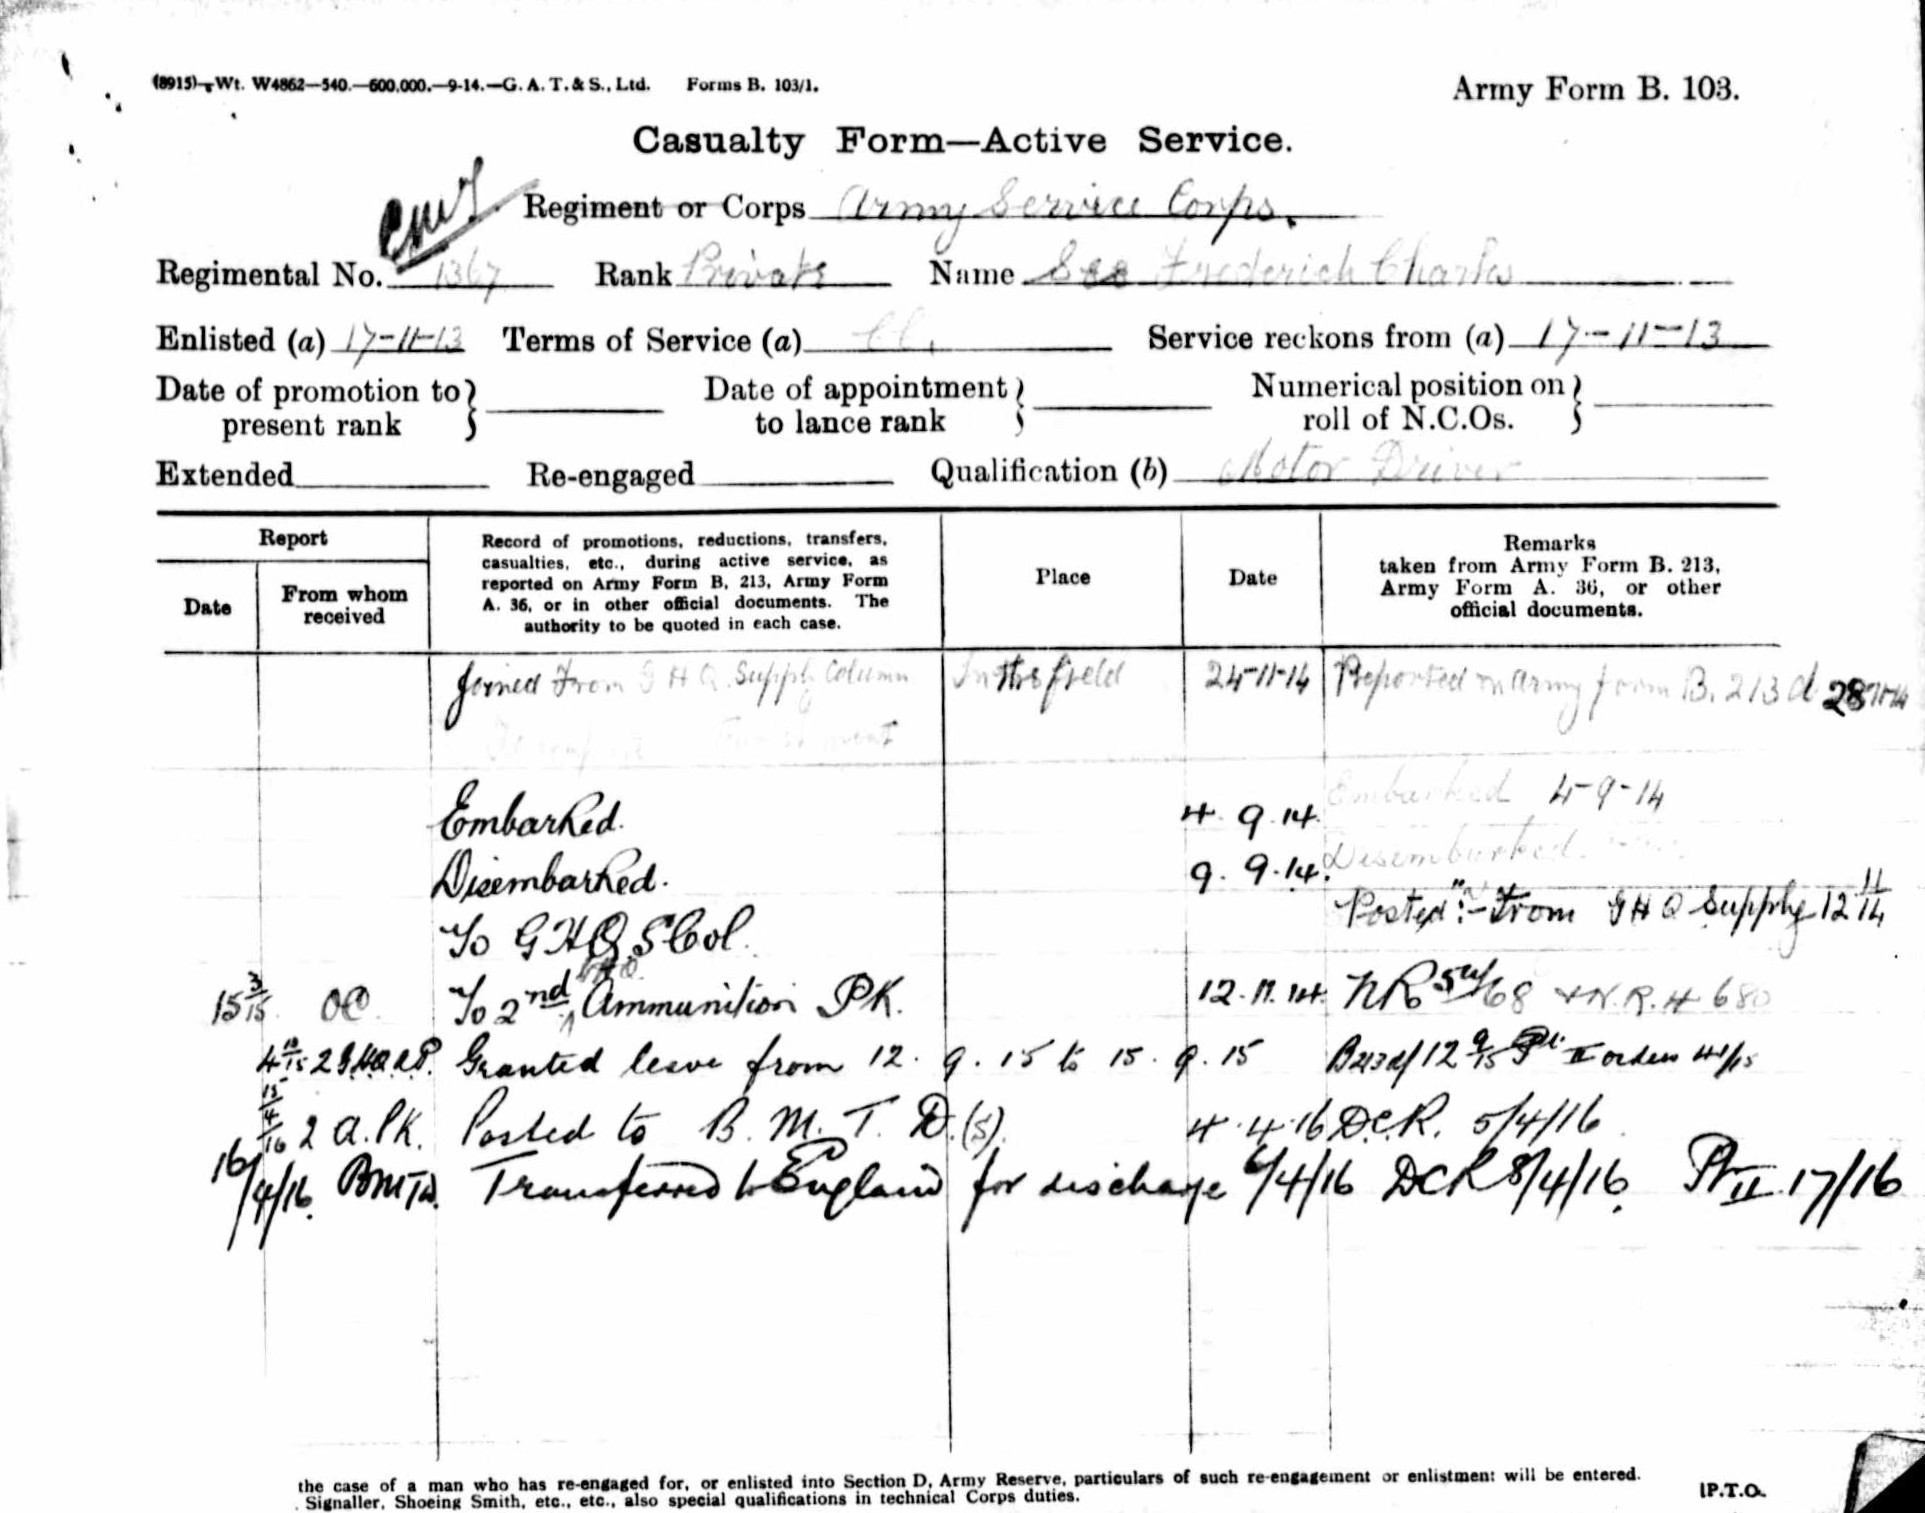 (8915)—Wt. W4862—540.—600,000.—9-14.—G. A. T. & S., Ltd. Forms B. 103/1.
Army Form B. 103.
Casualty Form—Active Service.
Regiment or Corps Army Service Corps.
Regimental No. 1367 Rank Private Name Frederick Charles
Enlisted (a) 17-11-13 Terms of Service (a) Service reckons from (a) 17-11-13
Date of promotion to present rank Date of appointment to lance rank Numerical position on roll of N.C.Os.
Extended Re-engaged Qualification (b) Motor Driver
Report
Date
From whom received
Record of promotions, reductions, transfers,
casualties, etc., during active service, as
reported on Army Form B, 213, Army Form
A. 36, or in other official documents. The
authority to be quoted in each case.
Place
Date
Remarks
taken from Army Form B. 213,
Army Form A. 36, or other
official documents.
Joined From G H Q Supply Column In the field 24-11-14 Reported on Army form B. 213 d 28-11-14
Embarked 4-9-14
Embarked. 4. 9. 14.
Disembarked.
Disembarked. 9. 9. 14.
Posted :- From G H Q Supply 12 11/14
To G H Q S Col.
15 3/15 OC. To 2nd Ammunition PK. 12. 11. 14. NR 68 & N.R. 4 680
4 10/15 2 GHQ A.P. Granted leave from 12. 9. 15 to 15. 9. 15 B213 d/ 12 9/15 Pt II orders
15/4/16 2 A. PK. Posted to B. M. T. D. (S). 4. 4. 16 D.C.R. 5/4/16
16/4/16 BMTD. Transferred to England for discharge 6/4/16 DCR 8/4/16. Pt II 17/16
the case of a man who has re-engaged for, or enlisted into Section D, Army Reserve, particulars of such re-engagement or enlistment will be entered.
Signaller, Shoeing Smith, etc., etc., also special qualifications in technical Corps duties.
[P.T.O.